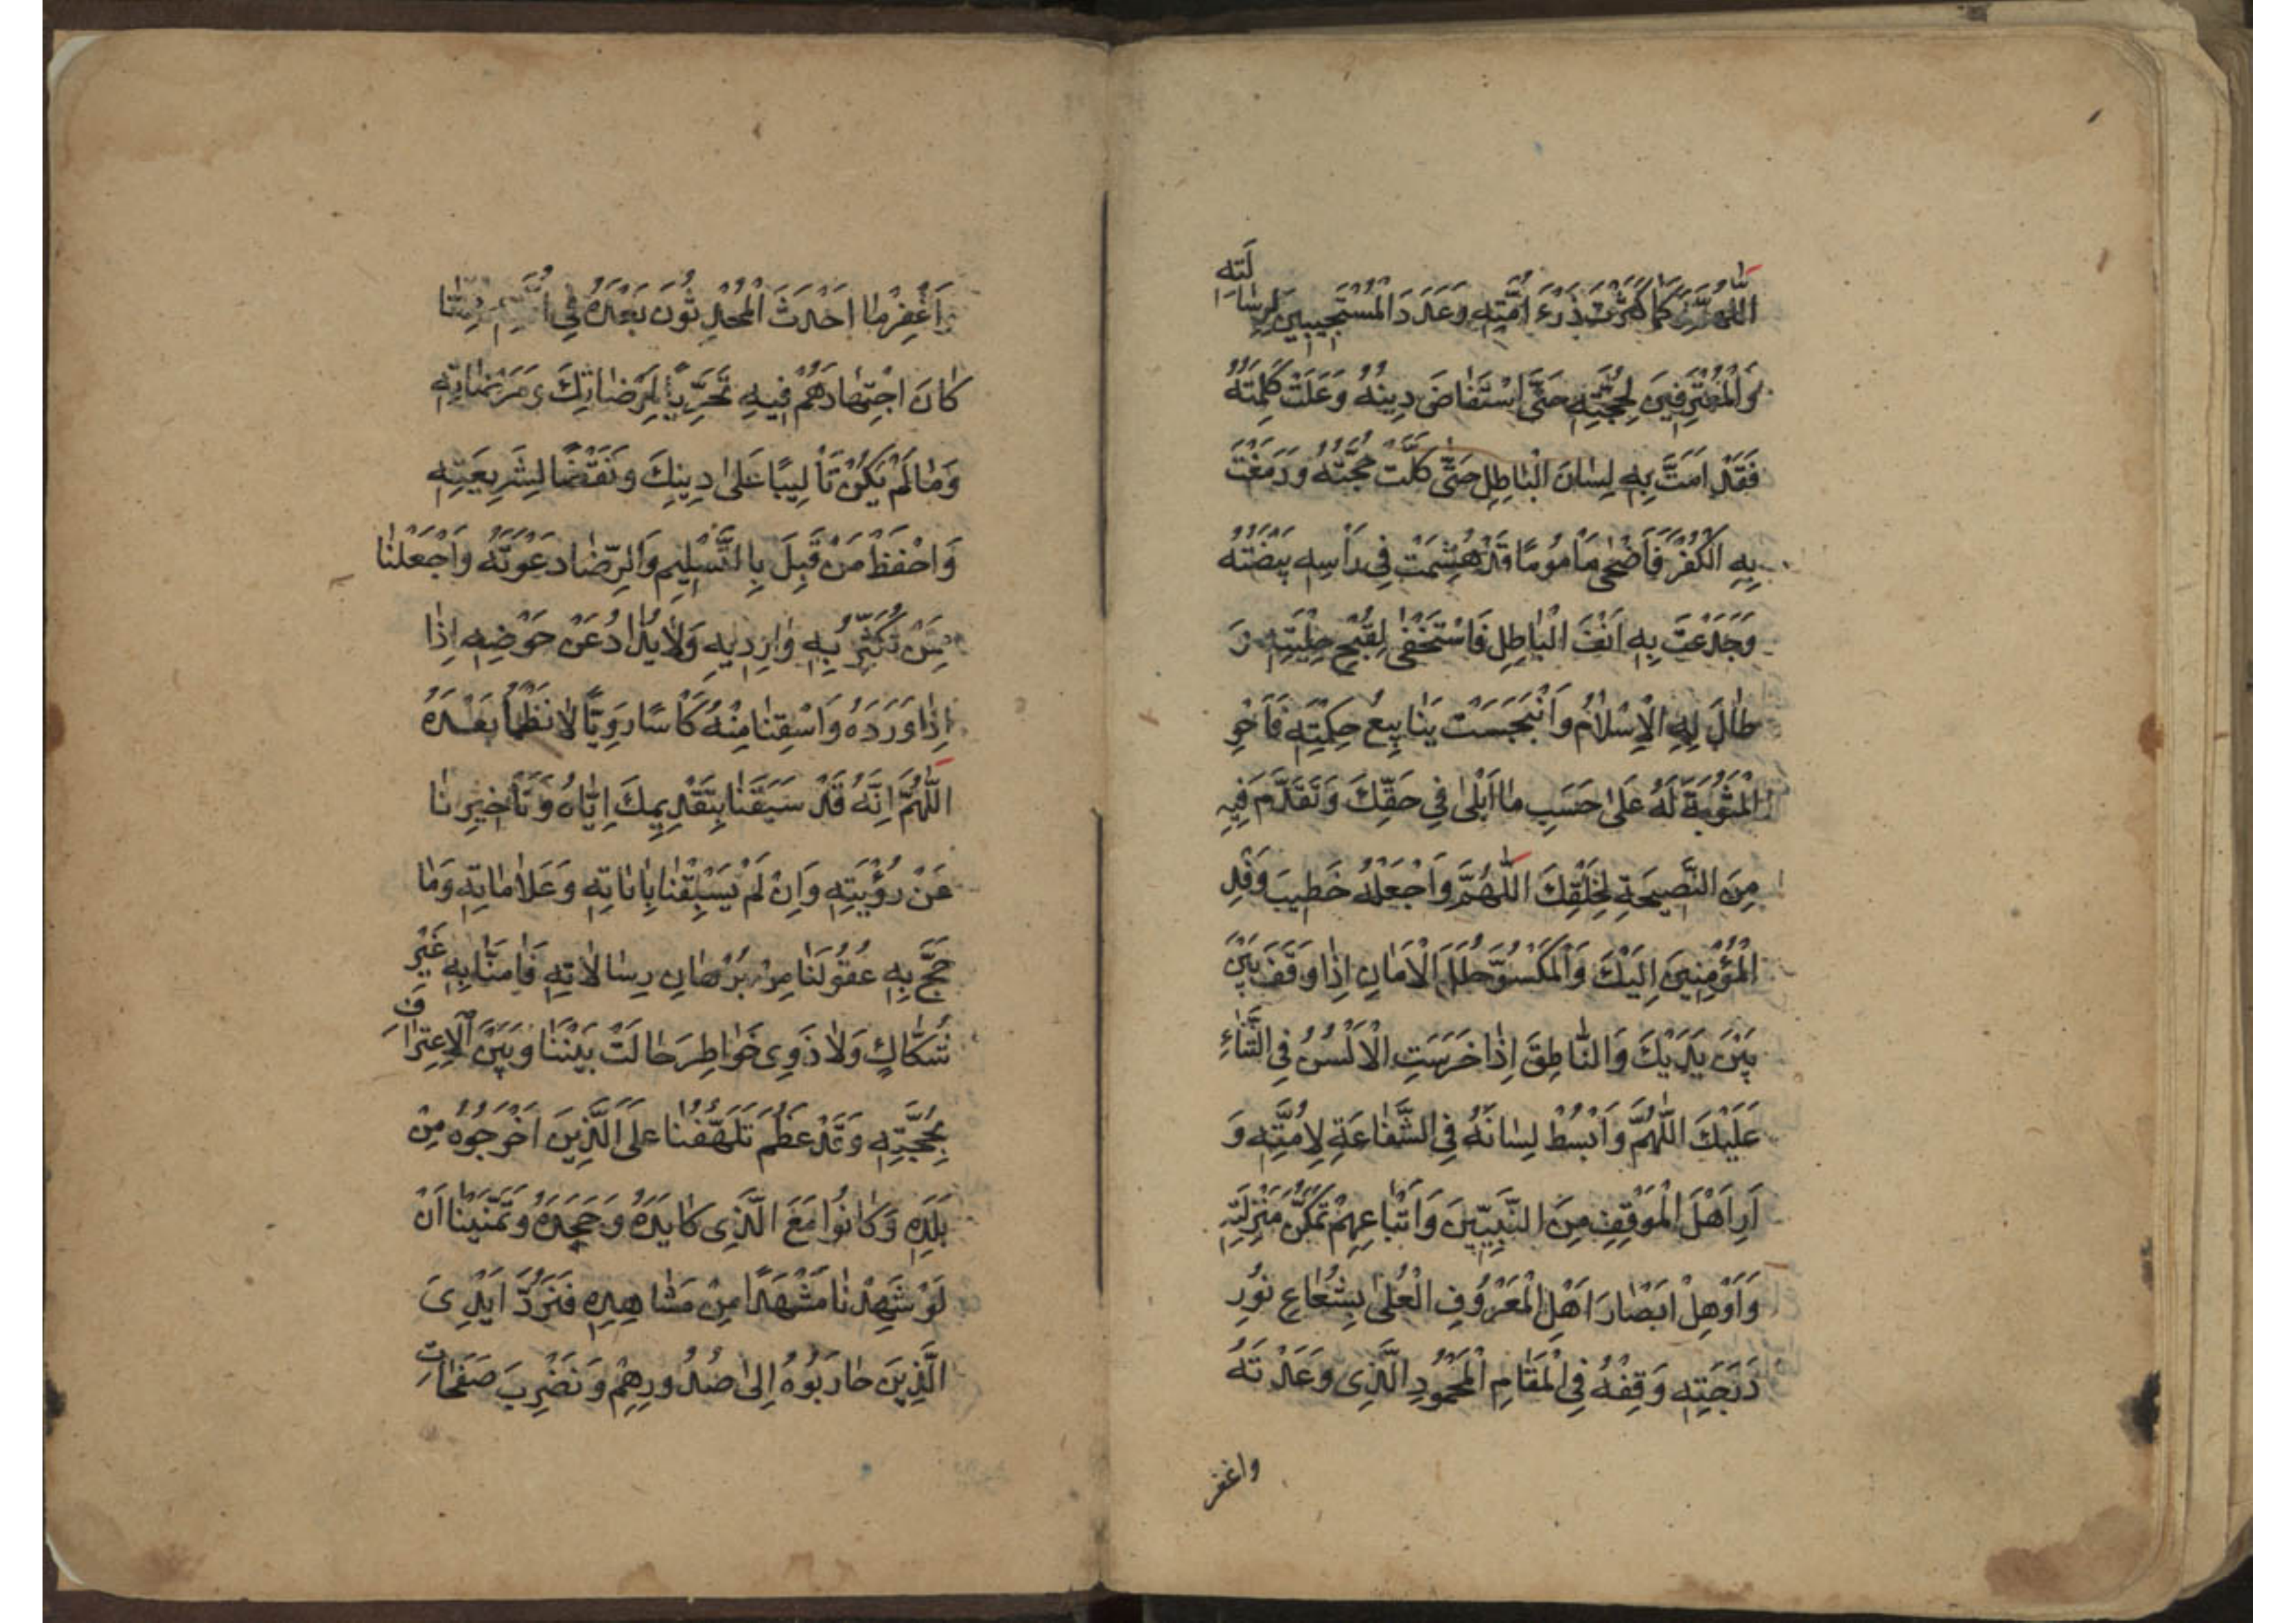 اللّٰهُمَّ كَمَا كَثَّرْتَ ذَرْءَ اُمَّتِهِ وَعَدَدَ الْمُسْتَجِيبِينَ لِرِسَالَتِهِ
وَالْمُعْتَرِفِينَ لِحُجَّتِهِ حَتَّى اسْتَفَاضَ دِينُهُ وَعَلَتْ كَلِمَتُهُ
فَقَدْ اَمَتَّ بِهِ لِسَانَ الْبَاطِلِ حَتَّى كَلَّتْ حُجَّتُهُ وَدَمَغْتَ
بِهِ الْكُفْرَ فَاَضْحٰى مَاْمُومًا قَدْ هُشِمَتْ فِى رَاْسِهِ بَيْضَتُهُ
وَجَدَعْتَ بِهِ اَنْفَ الْبَاطِلِ فَاسْتَخْفٰى لِقُبْحِ حِلْيَتِهِ وَ
طَالَ بِهِ الْاِسْلَامُ وَانْبَجَسَتْ يَنَابِيعُ حِكْمَتِهِ فَاَجْرِ
الْمَثُوبَةَ لَهُ عَلٰى حَسَبِ مَا اَبْلٰى فِى حَقِّكَ وَتَقَدَّمَ فِيهِ
مِنَ النَّصِيحَةِ لِخَلْقِكَ اللّٰهُمَّ وَاجْعَلْهُ خَطِيبَ وَفْدِ
الْمُؤْمِنِينَ اِلَيْكَ وَالْمَكْسُوَّ حُلَلَ الْاَمَانِ اِذَا وَقَفَ بَيْنَ
بَيْنَ يَدَيْكَ وَالنَّاطِقَ اِذَا خَرَسَتِ الْاَلْسُنُ فِى الثَّنَاءِ
عَلَيْكَ اللّٰهُمَّ وَابْسُطْ لِسَانَهُ فِى الشَّفَاعَةِ لِاُمَّتِهِ وَ
اَرِ اَهْلَ الْمَوْقِفِ مِنَ النَّبِيِّينَ وَاَتْبَاعِهِمْ تَمَكُّنَ مَنْزِلَتِهِ
وَاَوْهِلْ اَبْصَارَ اَهْلِ الْمَعْرُوفِ الْعُلٰى بِشُعَاعِ نُورِ
دَرَجَتِهِ وَقِفْهُ فِى الْمَقَامِ الْمَحْمُودِ الَّذِى وَعَدْتَهُ
واغفر
وَاغْفِرْ مَا اَحْدَثَ الْمُحْدِثُونَ بَعْدَهُ فِى اُمَّتِهِ مِمَّا
كَانَ اجْتِهَادُهُمْ فِيهِ تَحَرِّيًا لِمَرْضَاتِكَ وَمَرْضَاتِهِ
وَمَا لَمْ يَكُنْ تَاْلِيبًا عَلٰى دِينِكَ وَنَقْضًا لِشَرِيعَتِهِ
وَاحْفَظْ مَنْ قَبِلَ بِالتَّسْلِيمِ وَالرِّضَا دَعْوَتَهُ وَاجْعَلْنَا
مِمَّنْ تُكَثِّرُ بِهِ وَارِدِيهِ وَلَا يُذَادُ عَنْ حَوْضِهِ اِذَا
اِذَا وَرَدَهُ وَاسْقِنَا مِنْهُ كَاْسًا رَوِيًّا لَا نَظْمَأُ بَعْدَهُ
اللّٰهُمَّ اِنَّهُ قَدْ سَبَقَنَا بِتَقْدِيمِكَ اِيَّاهُ وَتَاْخِيرِنَا
عَنْ رُؤْيَتِهِ وَاِنْ لَمْ يَسْبِقْنَا بِاٰيَاتِهِ وَعَلَامَاتِهِ وَمَا
حَجَّ بِهِ عُقُولَنَا مِنْ بُرْهَانِ رِسَالَاتِهِ فَاٰمَنَّا بِهِ غَيْرَ
شُكَّاكٍ وَلَا ذَوِى خَوَاطِرَ حَالَتْ بَيْنَنَا وَبَيْنَ الْاِعْتِرَافِ
بِحُجَّتِهِ وَقَدْ عَظُمَ تَلَهُّفُنَا عَلَى الَّذِينَ اَخْرَجُوهُ مِنْ
بَلَدِهِ وَكَانُوا مَعَ الَّذِى كَايَدَهُ وَجَحَدَهُ وَتَمَنَّيْنَا اَنْ
لَوْ شَهِدْنَا مَشْهَدًا مِنْ مَشَاهِدِهِ فَنَرُدَّ اَيْدِىَ
الَّذِينَ حَارَبُوهُ اِلٰى صُدُورِهِمْ وَنَضْرِبَ صَفَحَاتِ